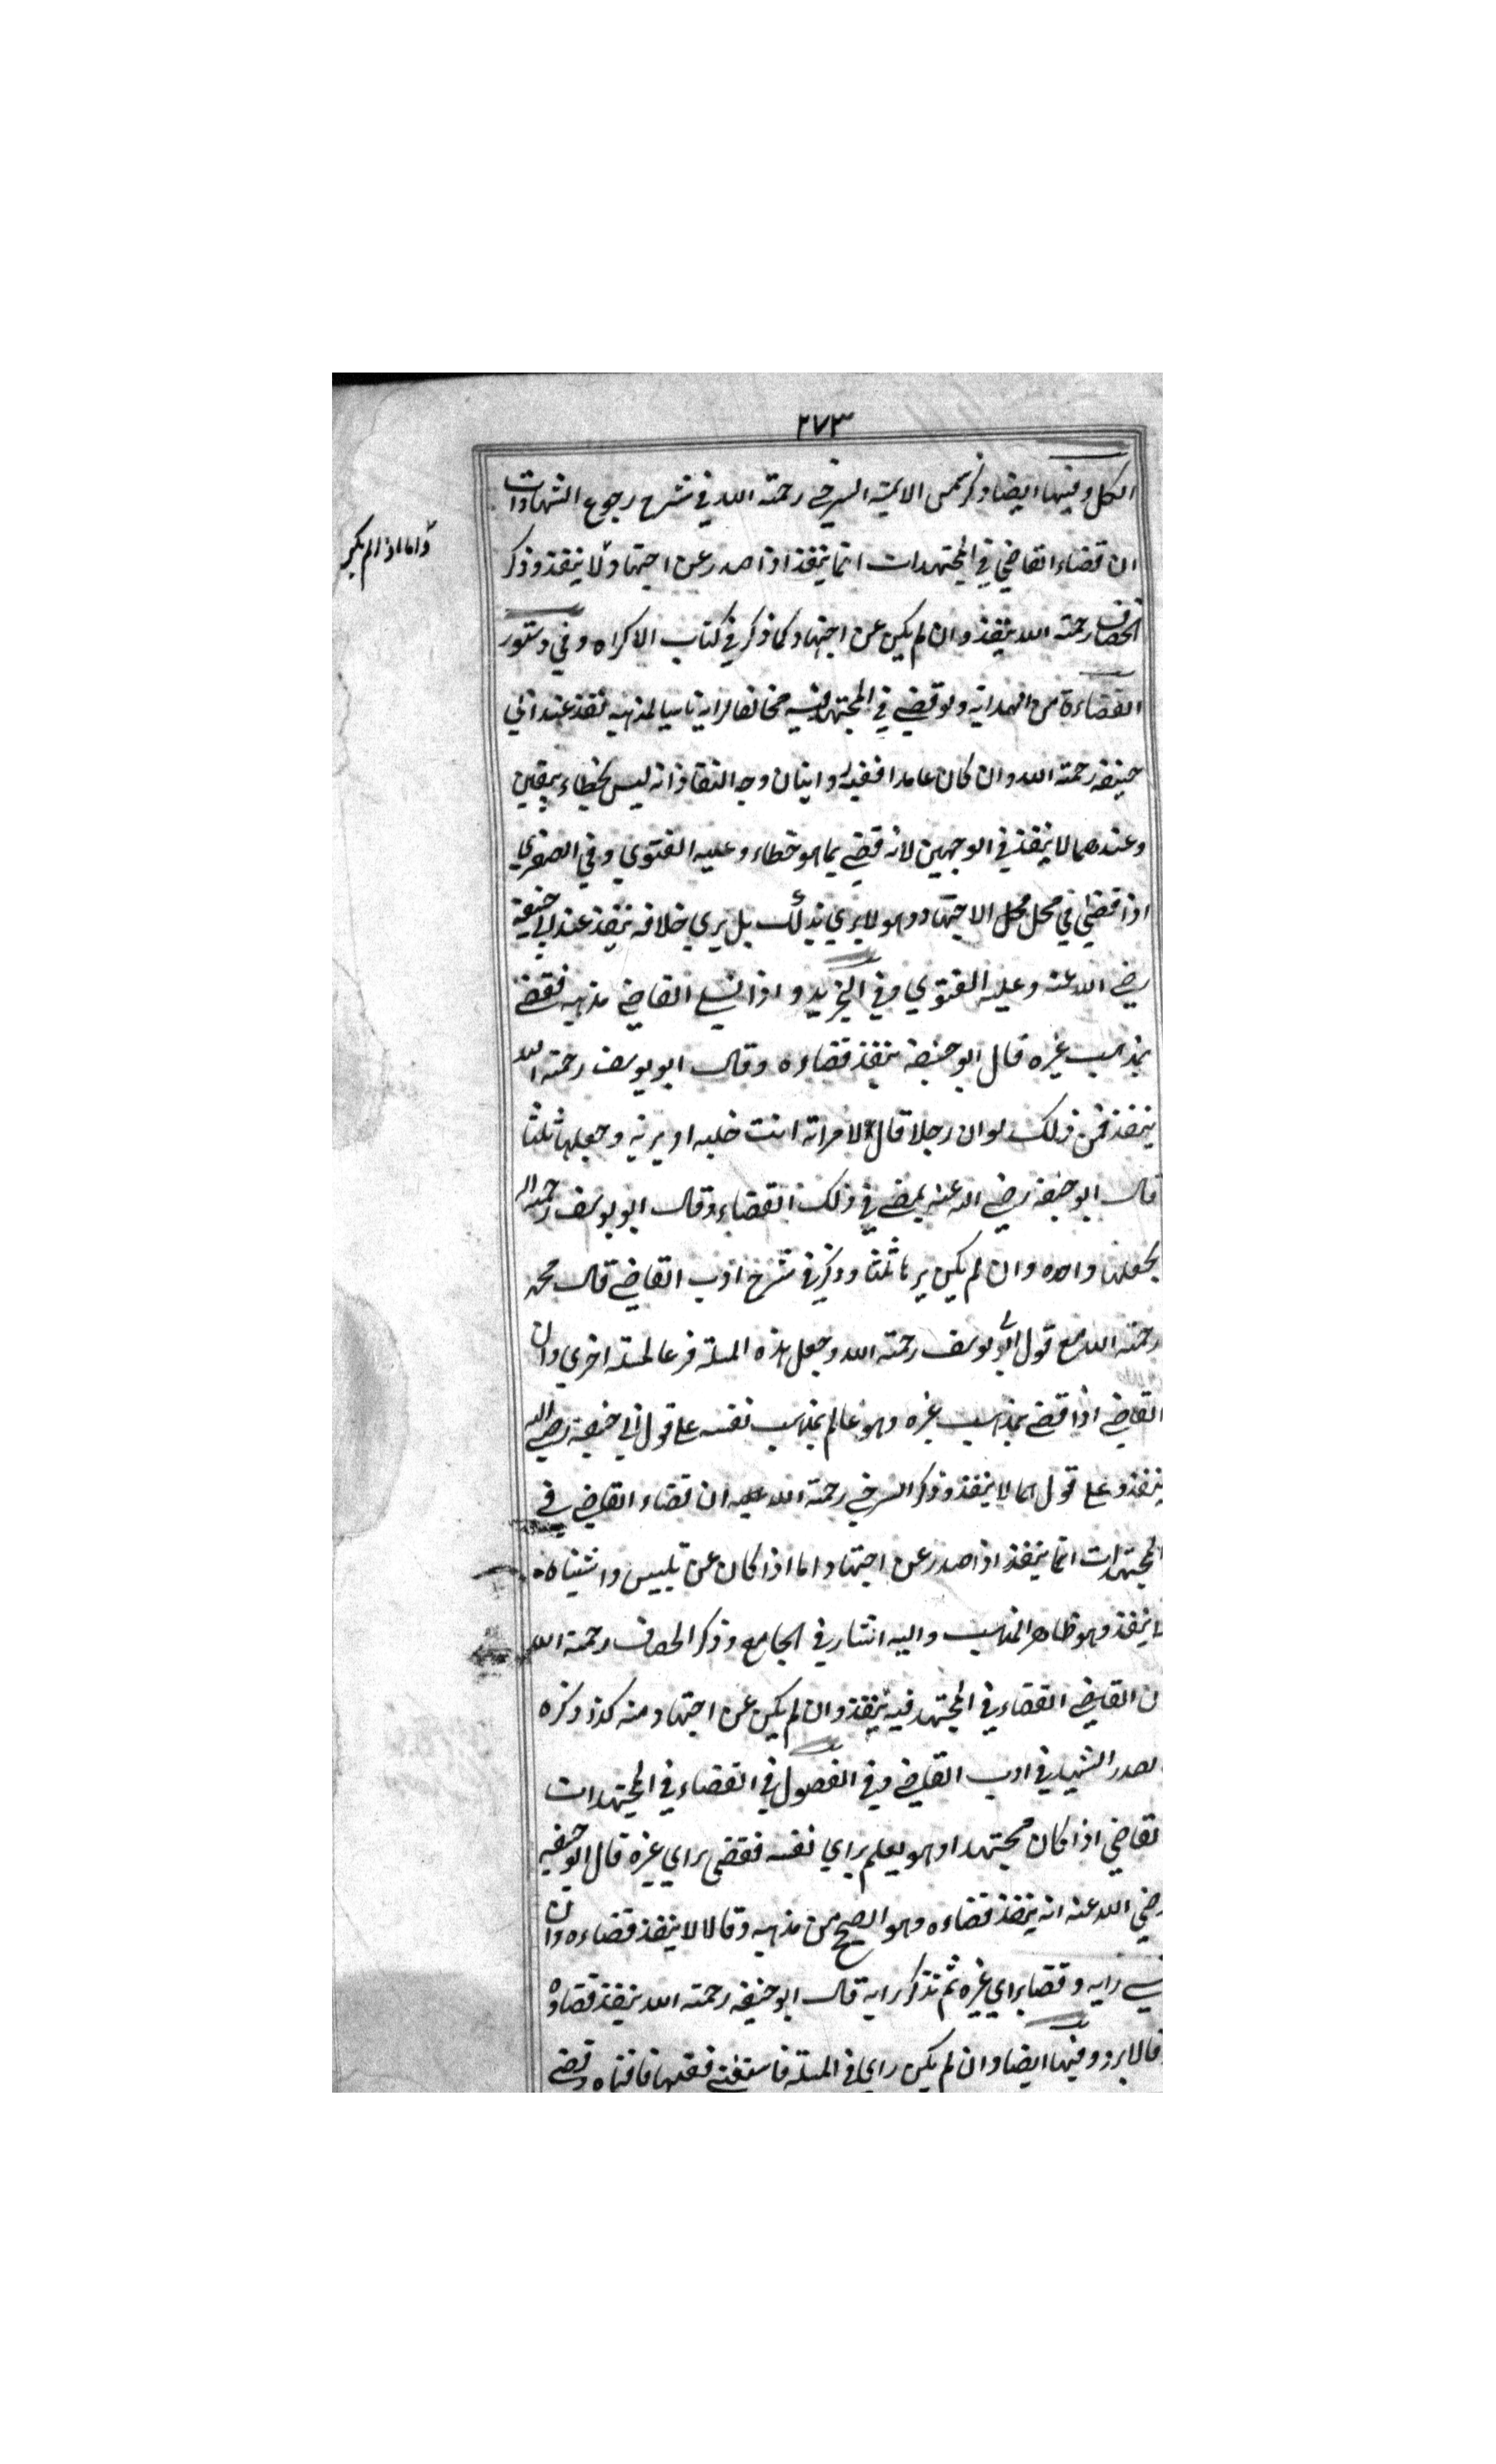 ٢٧٣
الكل وفيها ايضا وذكر شمس الايمة السرخي رحمته الله في شرح رجوع الشهادات
ان قضاء القاضي في المجتهدات انما ينفذ اذا صدر عن اجتهاد لا ينفذ وذكر
واما اذا لم يكن
الخصاف رحمته الله ينفذ وان لم يكن عن اجتهاد كما ذكر في كتاب الاكراه وفي دستور
القضاءة من الهداية ولو قضى في المجتهد فيه مخالفا لرايه ناسيا لمذهبه نفذ عند ابي
حنيفه رحمته الله وان كان عامدا ففيه روايتان وجه النفاذ انه ليس بخطاء بيقين
وعندهما لا ينفذ في الوجهين لانه قضى بما هو خطاء وعليه الفتوي وفي الصغري
اذا قضي في محل محل الاجتهاد وهو لا يري بذلك بل يري خلافه ينفذ عند ابي حنيفة
رضي الله عنه وعليه الفتوي وفي التجريد واذا نسي القاضي مذهبه فقضى
بمذهب غيره قال ابو حنيفة ينفذ قضاءه وقال ابو يوسف رحمته الله
ينفذ فمن ذلك لو ان رجلا قال لامراته انت خليه او بريه وجعلها ثلثا
قال ابو حنيفة رضي الله عنه يمضى في ذلك القضاء وقال ابو يوسف رحمه الله
يجعلها واحده وان لم يكن يرها ثلثا وذكر في شرح ادب القاضي قال محمد
رحمته الله مع قول ابو يوسف رحمته الله وجعل هذه المسلة فرعا لمسلة اخري وان
القاضي اذا قضى بمذهب غيره وهو عالم بمذهب نفسه على قول ابي حنيفة رضي الله
ينفذ وعلى قولهما لا ينفذ وذكر السرخي رحمته الله عليه ان قضاء القاضي في
المجتهدات انما ينفذ اذا صدر عن اجتهاد اما اذا كان عن تلبيس واشتباه
لا ينفذ وهو ظاهر المذهب واليه اشار في الجامع وذكر الخصاف رحمته الله
ن القاضي القضاء في المجتهد فيه ينفذ وان لم يكن عن اجتهاد منه كذا ذكره
لصدر الشهيد في ادب القاضي وفي الفصول في القضاء في المجتهدات
لقاضي اذا كان مجتهدا وهو يعلم براي نفسه فقضى براي غيره قال ابو حنيفه
رضي الله عنه انه ينفذ قضاءه وهو الصحيح من مذهبه وقالا لا ينفذ قضاءه وان
نسي رايه وقضا براي غيره ثم تذكر رايه قال ابو حنيفه رحمته الله ينفذ قضاوه
وقالا يرد وفيها ايضا وان لم يكن راي في المسلة فاستفتى فقيها فافتاه وقضى